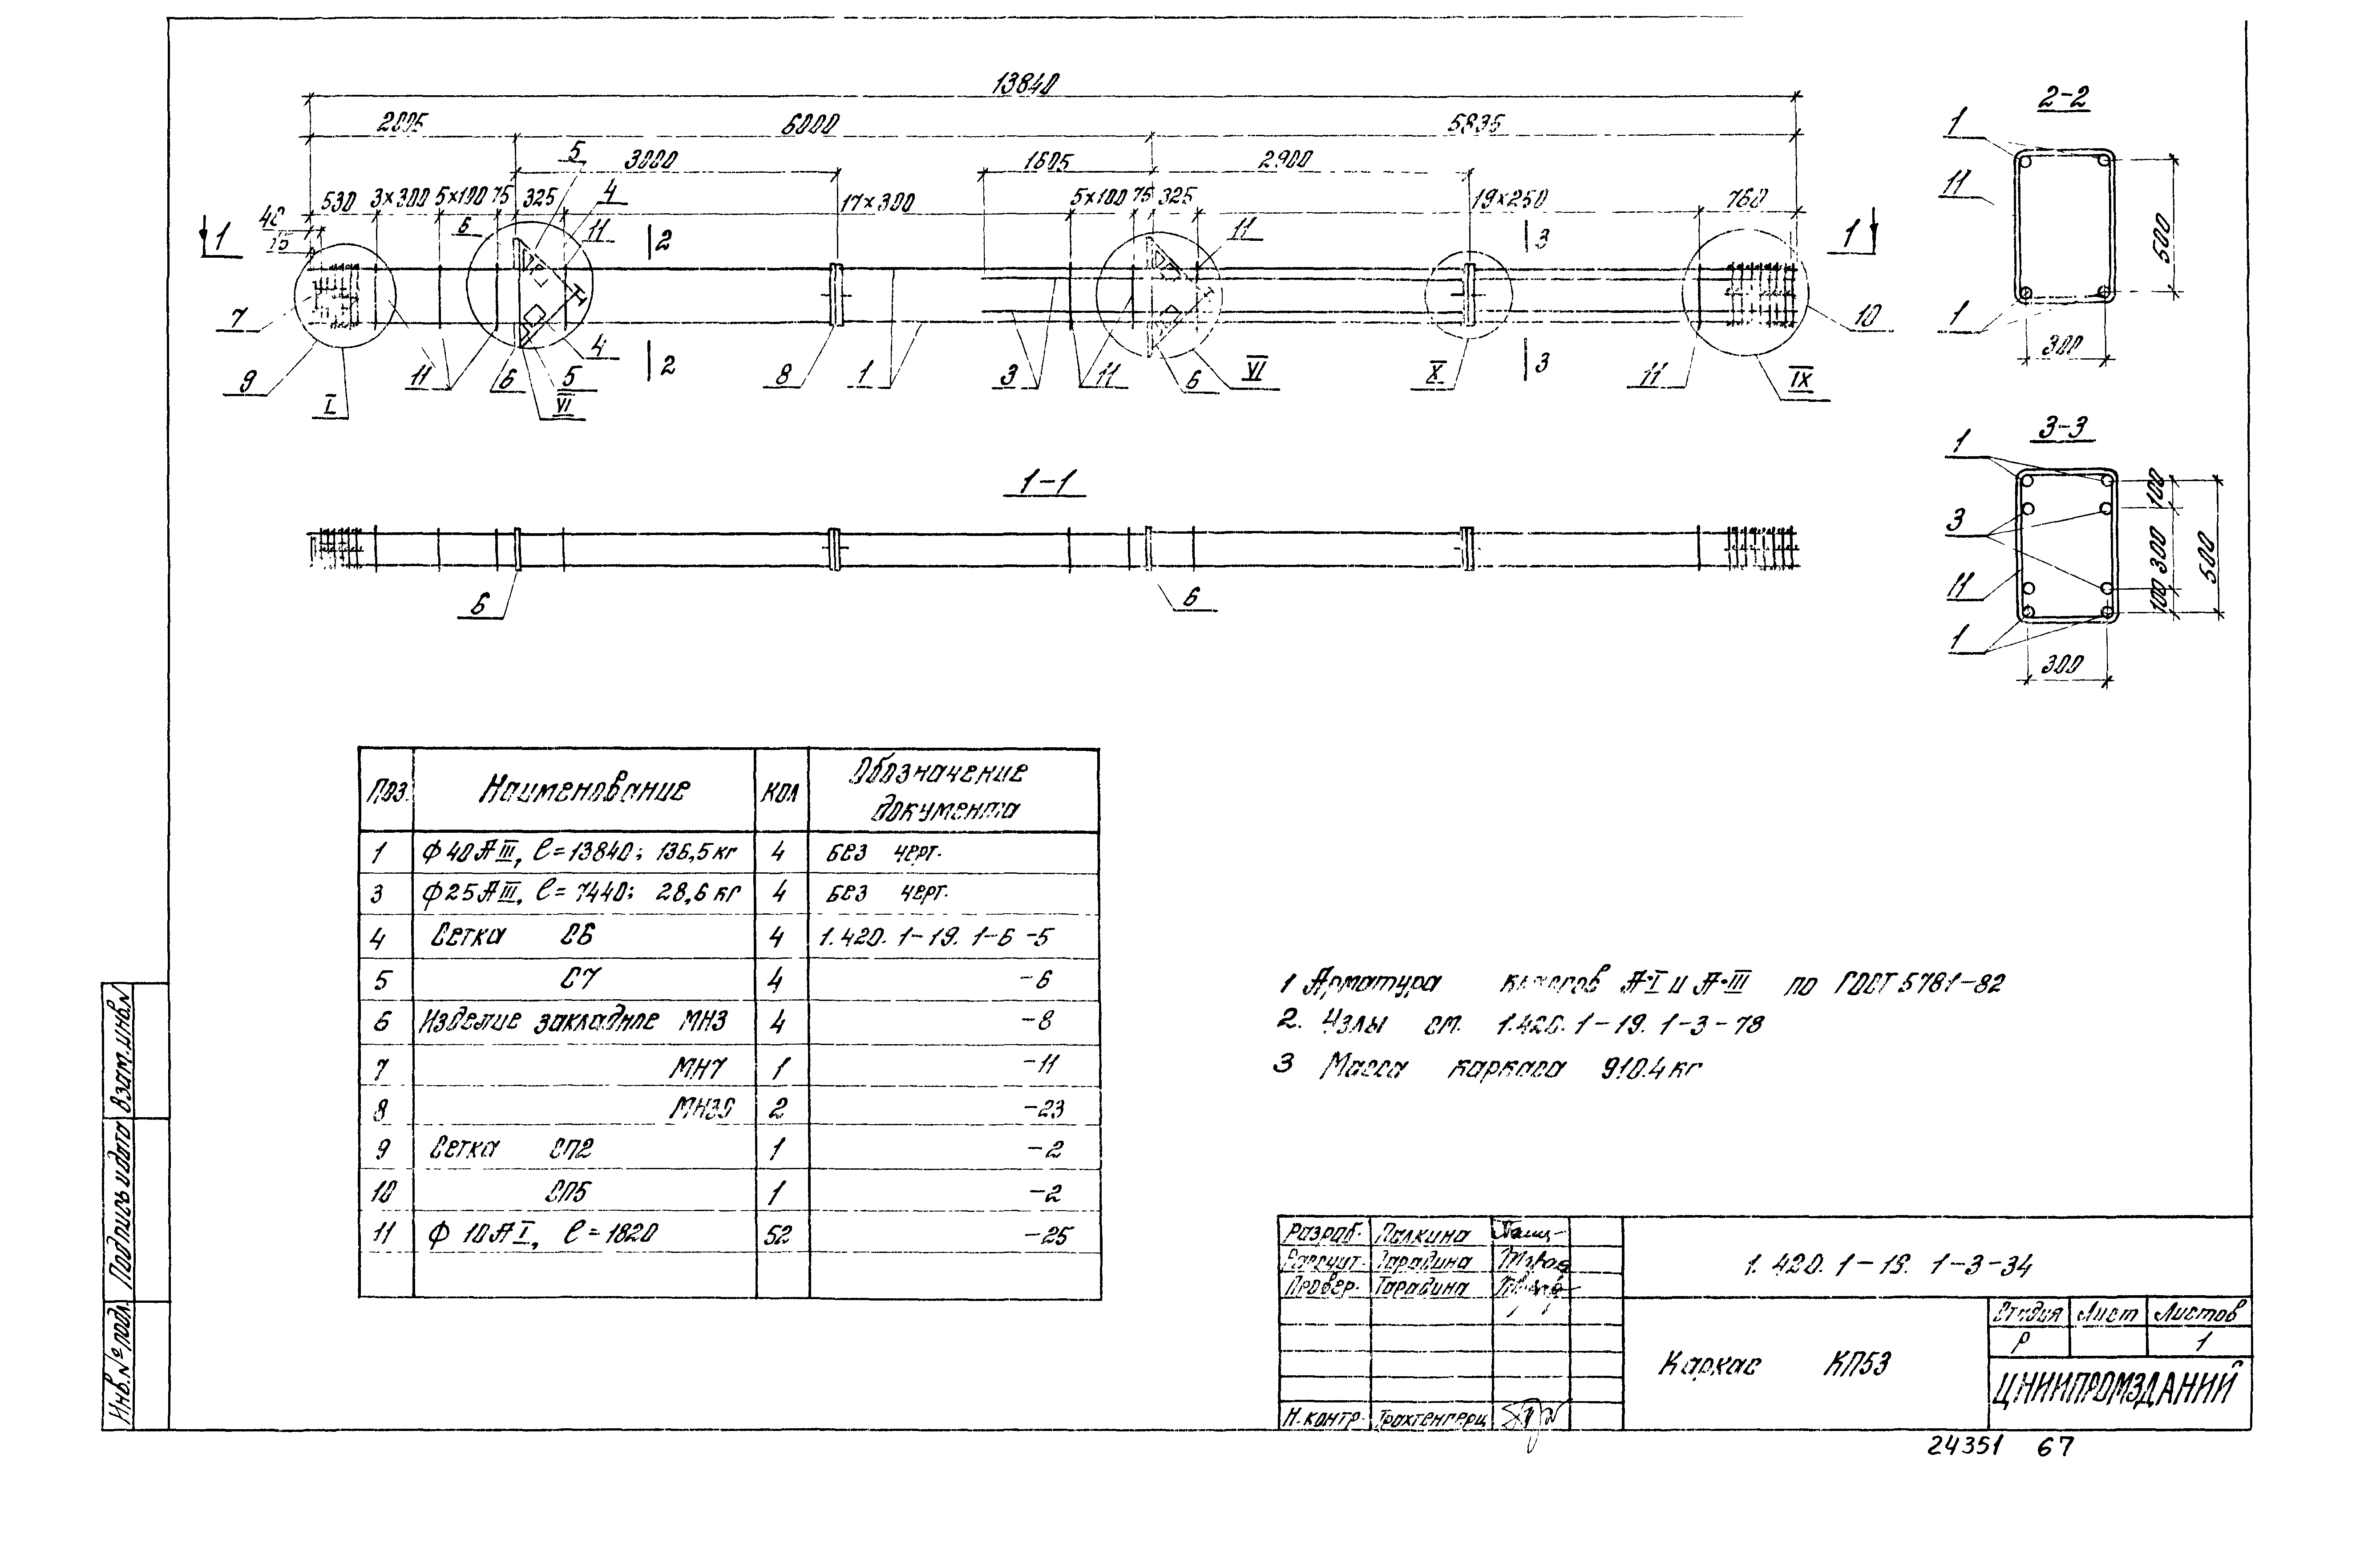 13840
2005 6000 5835
3000 1605 2900
530 3×300 5×100 75 325 17×300 5×100 75 325 19×250 760
40
15
1 1
5 4 11 6 2 11 3
7 10
9 I 11 6 5 VI 4 2 8 1 3 11 6 VI X 3 11 IX
2-2
1
11
1
500
300
1-1
6 6
3-3
1
3
11
1
100
300
100
500
300
Поз. Наименование Кол Обозначение документа
1 ф40АIII, ℓ=13840; 136,5кг 4 Без черт.
3 ф25АIII, ℓ=7440; 28,6кг 4 Без черт.
4 Сетка С6 4 1.420.1-19.1-6-5
5 С7 4 -6
6 Изделие закладное МН3 4 -8
7 МН7 1 -11
8 2 -23
9 Сетка СП2 1 -2
10 СП5 1 -2
11 ф10АI, ℓ=1820 52 -25
1 Арматура классов А-I и А-III по ГОСТ 5781-82
2. Узлы см. 1.420.1-19.1-3-78
3 Масса каркаса 910.4кг
Разраб. Палкина
Рассчит. Тарадина
Провер. Тарадина
Н.контр.
1.420.1-19.1-3-34
Каркас КП53
Стадия Лист Листов
Р 1
ЦНИИПРОМЗДАНИЙ
24351 67
Взам.инв.№
Подпись и дата
Инв.№подл.